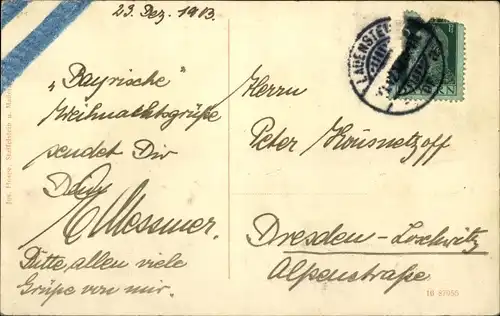 23. Dez. 1913.
„Bayrische"
Weihnachtsgrüße
sendet Dir
Dein
E. Messmer.
Bitte, allen viele
Grüße von mir.
Herrn
Peter Kousnetzoff
Dresden-Loschwitz
Alpenstraße
16 87950
LAUENSTE